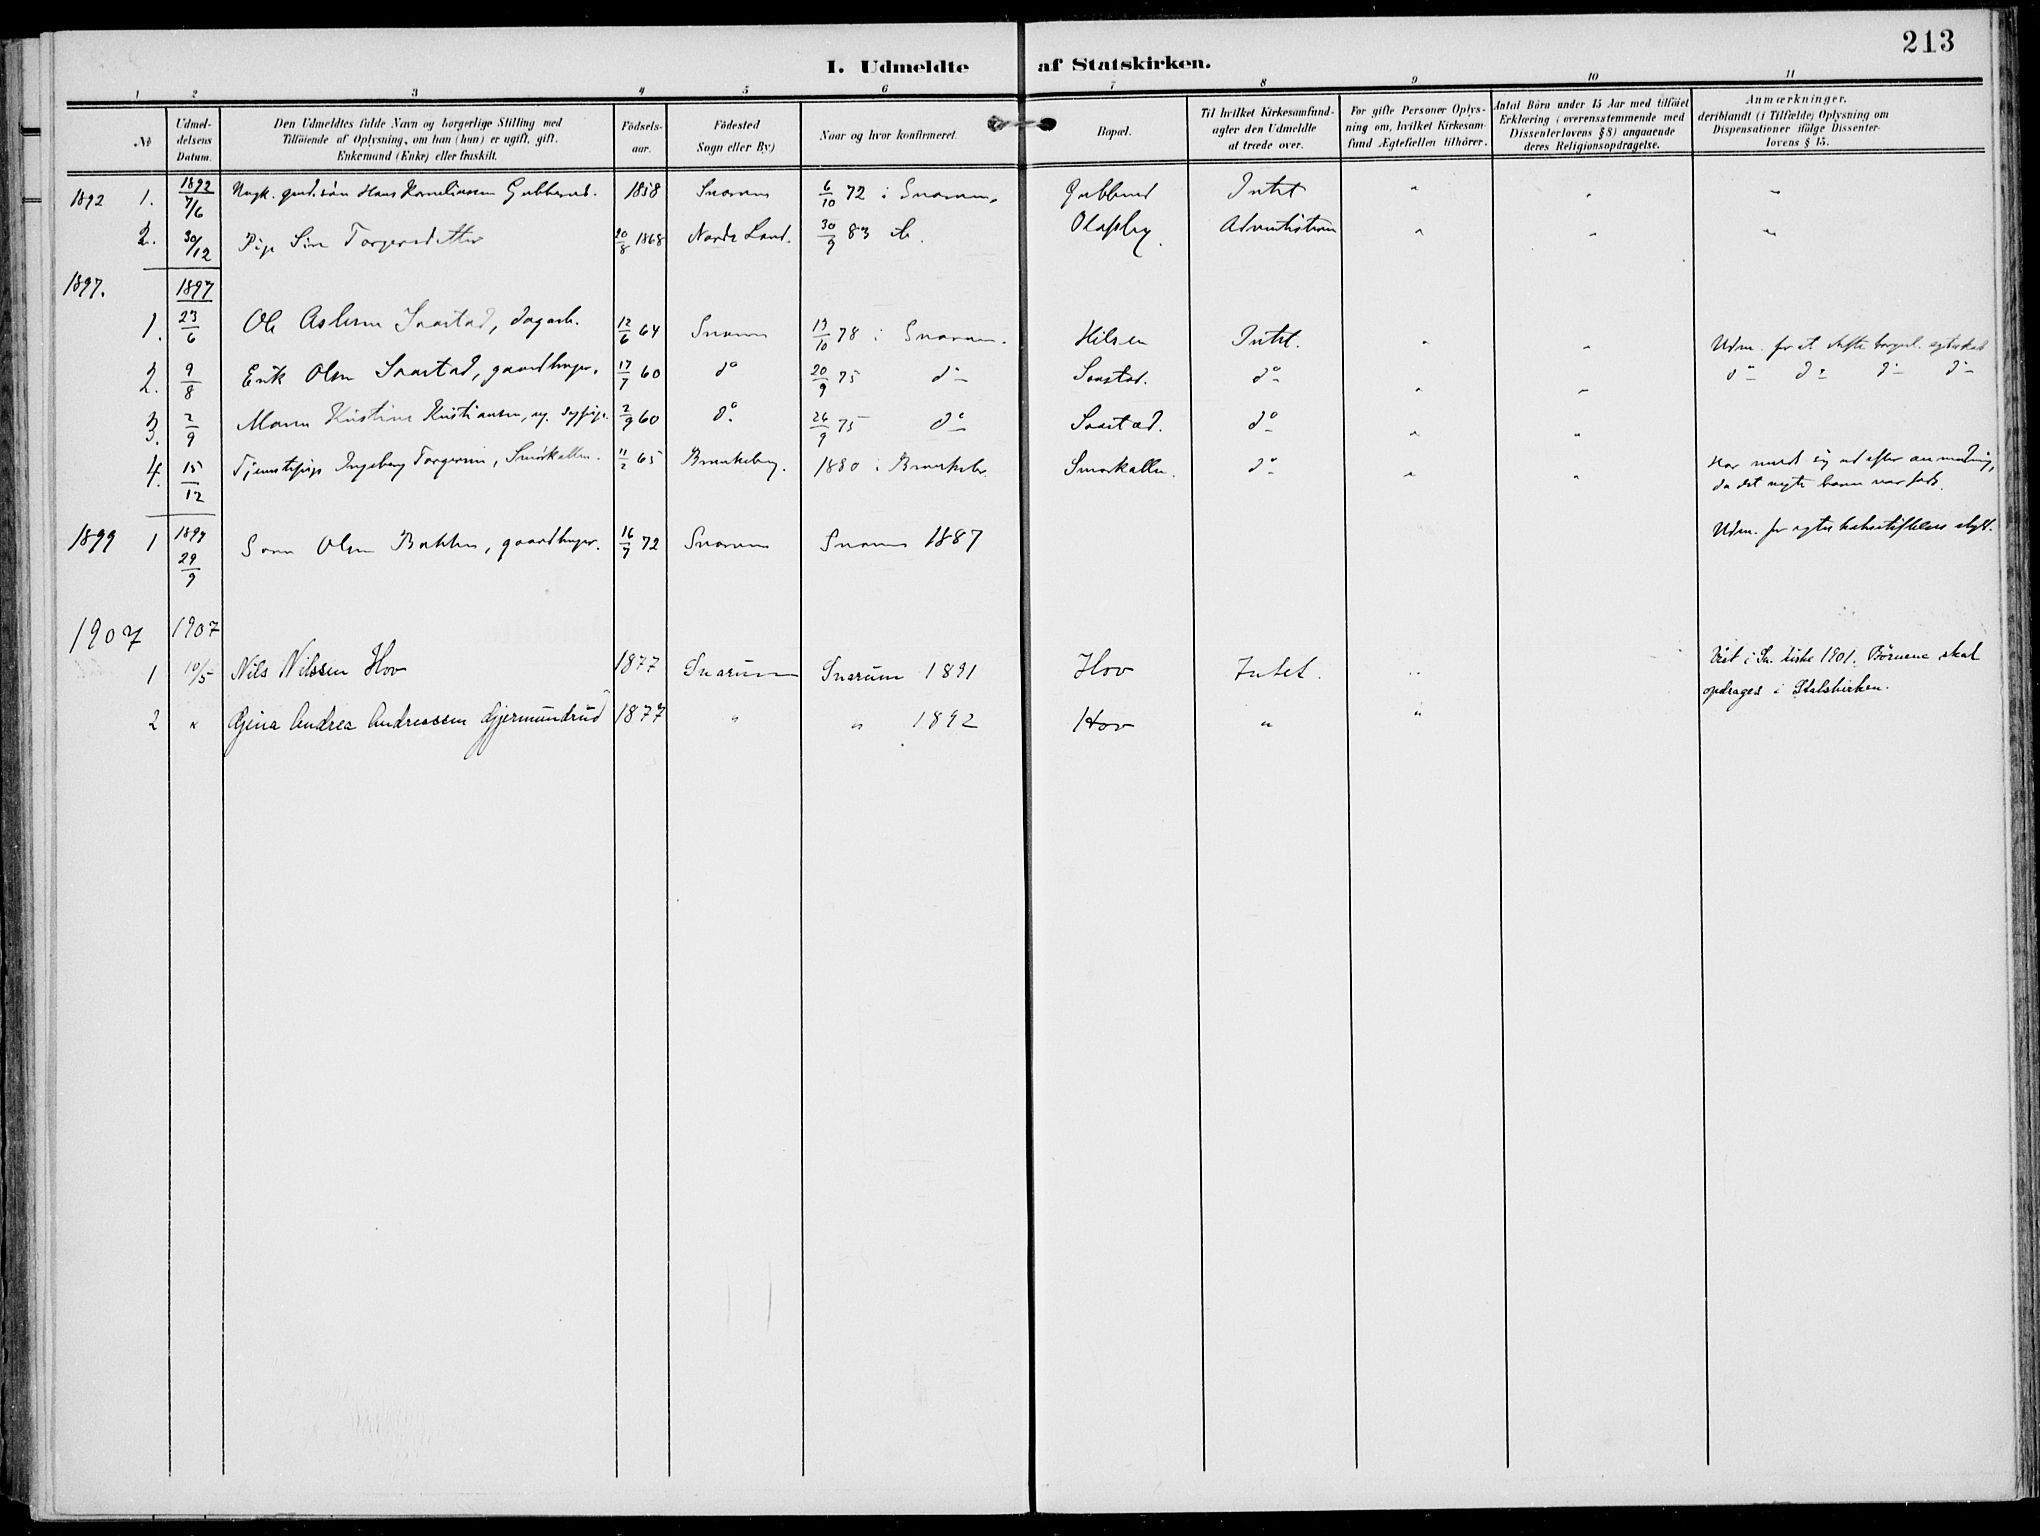 213
I. Udmeldte af Statskirken.
1 2 3 4 5 6 7 8 9 10 11
№
Udmel-
delsens
Datum.
Den Udmeldtes fulde Navn og borgerlige Stilling med
Tilföiende af Oplysning, om han (hun) er ugift, gift,
Enkemand (Enke) eller fraskilt.
Födsels-
aar.
Födested
Sogn eller By)
Naar og hvor konfirmeret.
Bopæl.
Til hvilket Kirkesamfund-
agter den Udmeldte
at træde over.
For gifte Personer Oplys-
ning om, hvilket Kirkesam-
fund Ægtefællen tilhörer.
Antal Börn under 15 Aar med tilföiet
Erklæring (overensstemmende med
Dissenterlovens § 8) angaaende
deres Religionsopdragelse.
Anmærkninger,
deriblandt (i Tilfælde) Oplysning om
Dispensationer ifölge Dissenter-
lovens § 15.
1892 1. 1892 7/6 Hans Korneliussen Gubberud. 1858 Snarum 6/10 72 i Snarum. Gubberud Intet " " "
2. 30/12 Pige Siri Torgersdatter 20/8 1868 Nordre Land. 30/9 83 Olafsby. " " "
1897. 1897
1. 23/6 Ole Aslesen Saastad, dagarb. 12/6 64 Snarum 13/10 78 i Snarum. Hilsen Intet. " " Udm. for at stifte borgerl. egteskab
2. 9/8 Erik Olsen Saastad, gaardbruger. 17/7 60 do 20/9 75 do Saastad. do " " do do do do
3. 2/9 Maren Kristine Kristiansen, ug. 2/9 60 do 26/9 75 do Saastad. do " "
4. 15/12 Tjenestepige Ingeborg Torgersen, Smörkallen. 11/2 65 1880 i Smorkallen. do " " Har meldt sig ud efter anmodning,
da det barn var född.
1899 1 1899 29/9 Olsen Bakken, gaardbruger. 16/7 72 Snarum Snarum 1887 Udm. for
1907 1907
1 10/5 Nils Nilssen Hov 1877 Snarum Snarum 1891 Hov Intet. " Viet i Sn. kirke 1901. Börnene skal
opdrages i Statskirken.
2 " Gina Andrea Andreassen Gjermundrud 1877 " " 1892 Hov " "